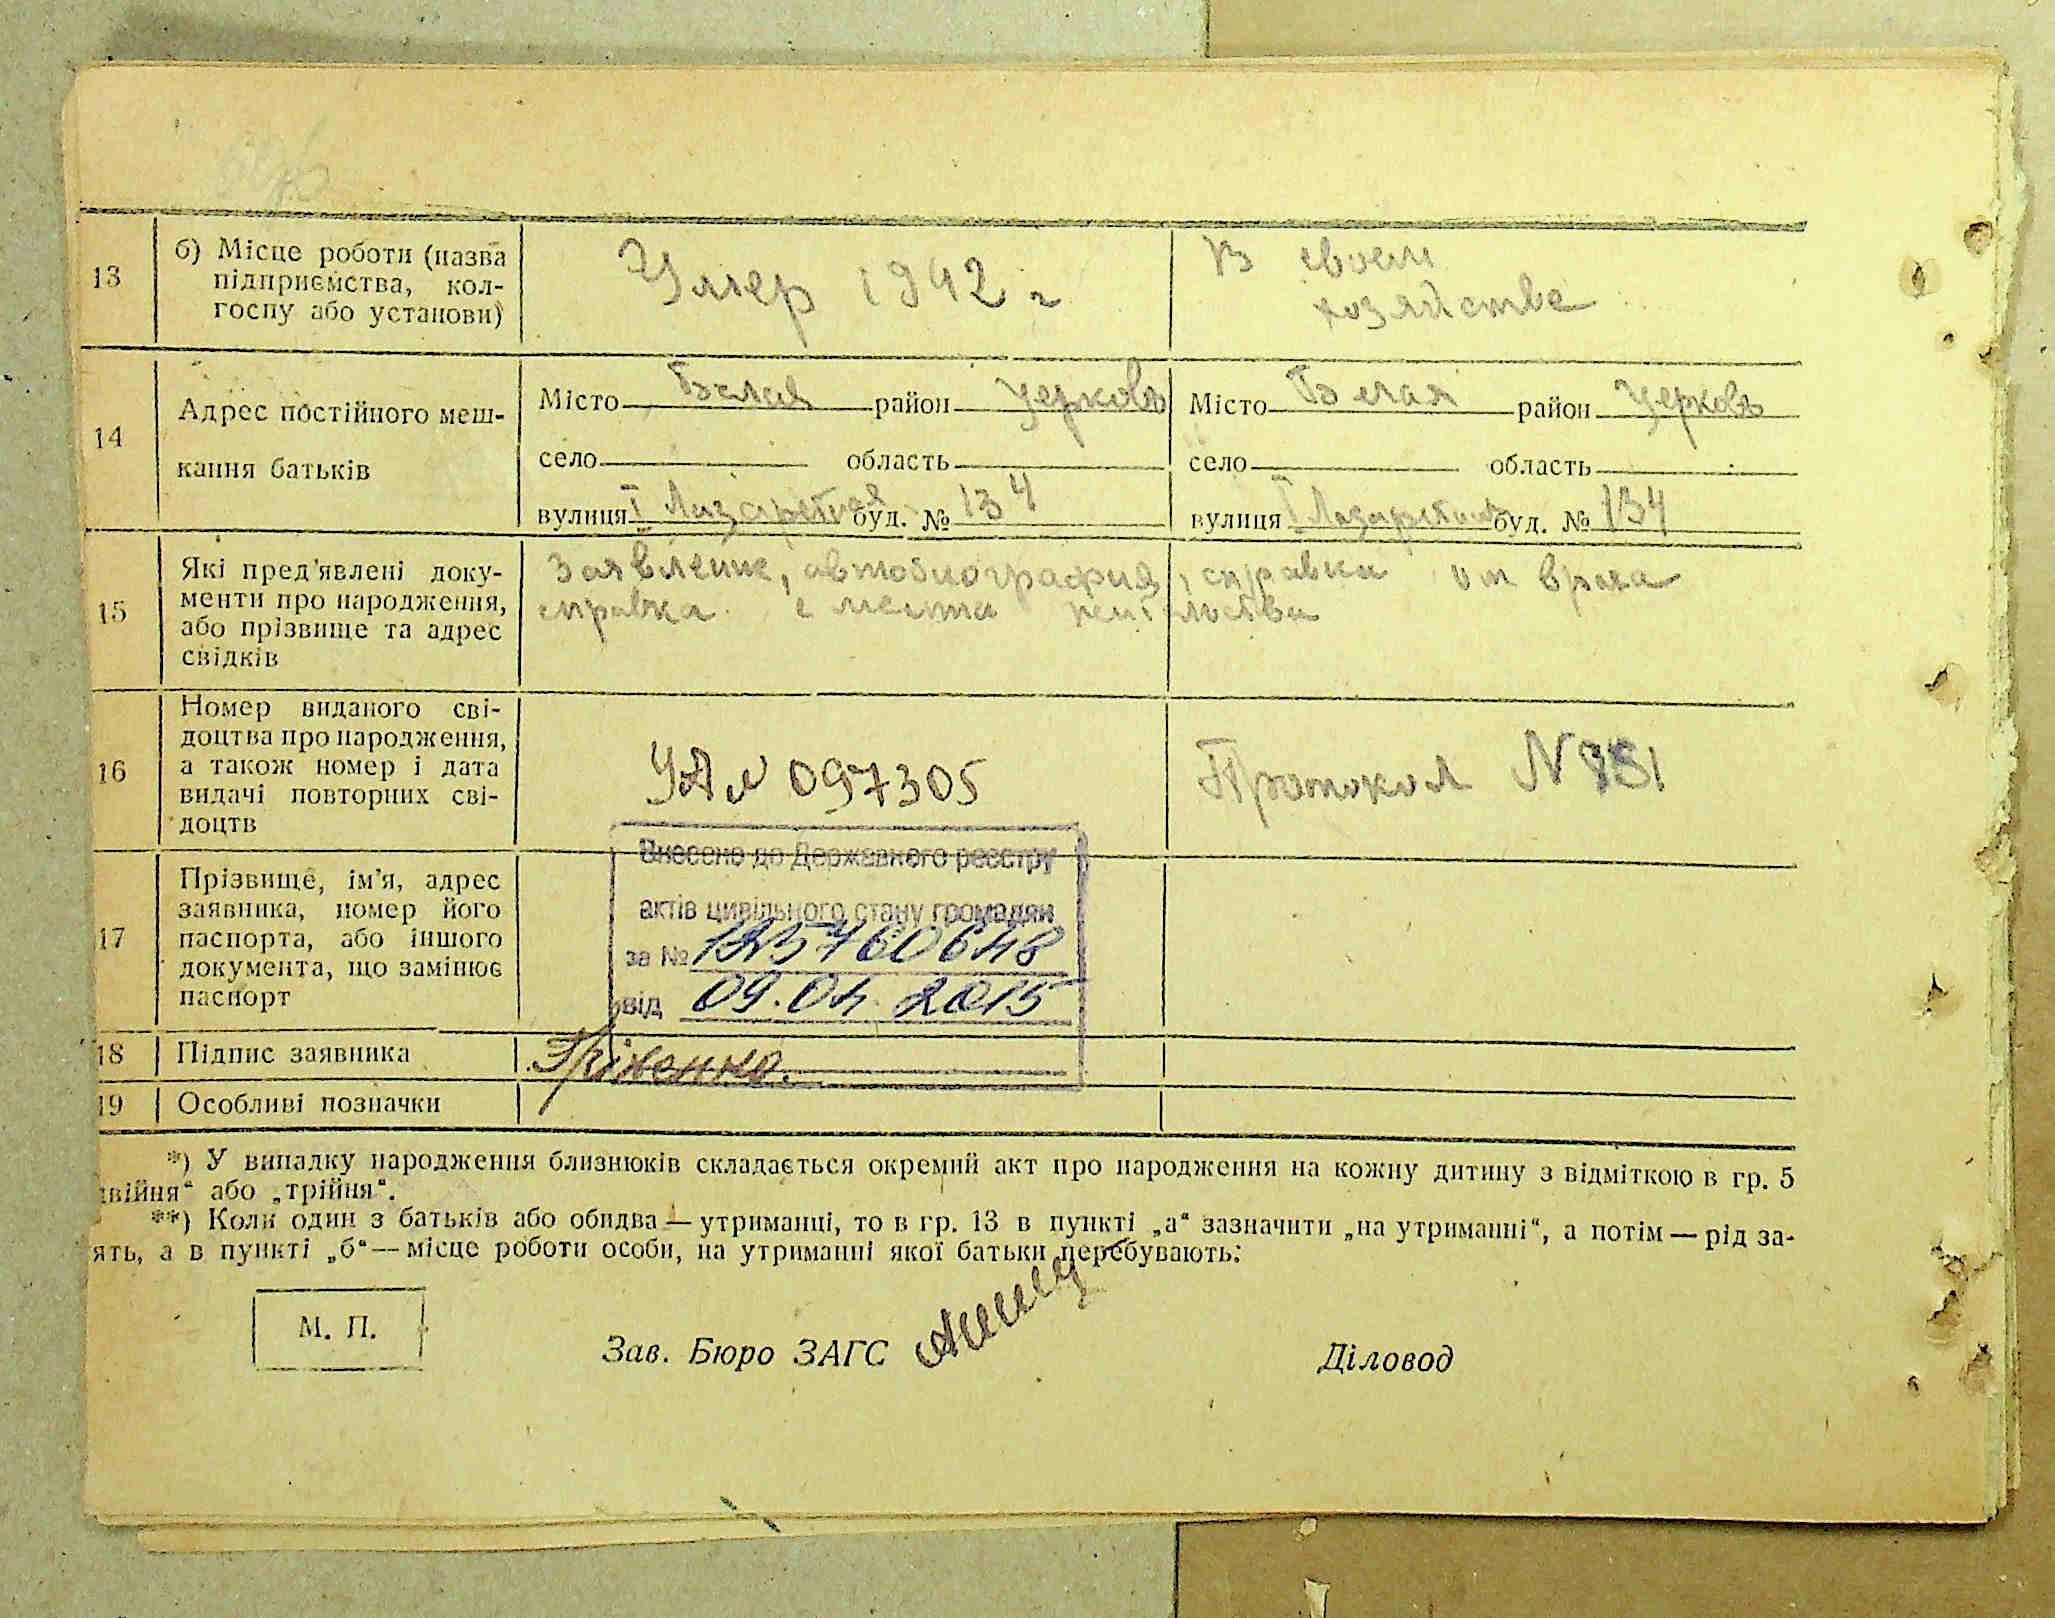 13
б) Місце роботи (назва
підприємства, кол-
госпу або установи)
Умер 1942 г
В своем
хозяйстве
14
Адрес постійного меш-
кання батьків
Місто Белая район Церковь
село область
вулиця I Лазаретная буд. № 134
Місто Белая район Церковь
село область
вулиця I Лазаретная буд. № 134
15
Які пред'явлені доку-
менти про народження,
або прізвище та адрес
свідків
Заявление, автобиография, справка от врача
справка с места жительства
16
Номер виданого сві-
доцтва про народження,
а також номер і дата
видачі повторних сві-
доцтв
УА № 097305
Протокол N
17
Прізвище, ім'я, адрес
заявника, номер його
паспорта, або іншого
документа, що замінює
паспорт
Внесено до Державного реєстру
актів цивільного стану громадян
за №
від 09.04.2015
18
Підпис заявника
19
Особливі позначки
*) У випадку народження близнюків складається окремий акт про народження на кожну дитину з відміткою в гр. 5
двійня“ або „трійня“.
**) Коли один з батьків або обидва — утриманці, то в гр. 13 в пункті „а“ зазначити „на утриманні“, а потім — рід за-
ять, а в пункті „б“ — місце роботи особи, на утриманні якої батьки перебувають.
М. П.
Зав. Бюро ЗАГС
Діловод